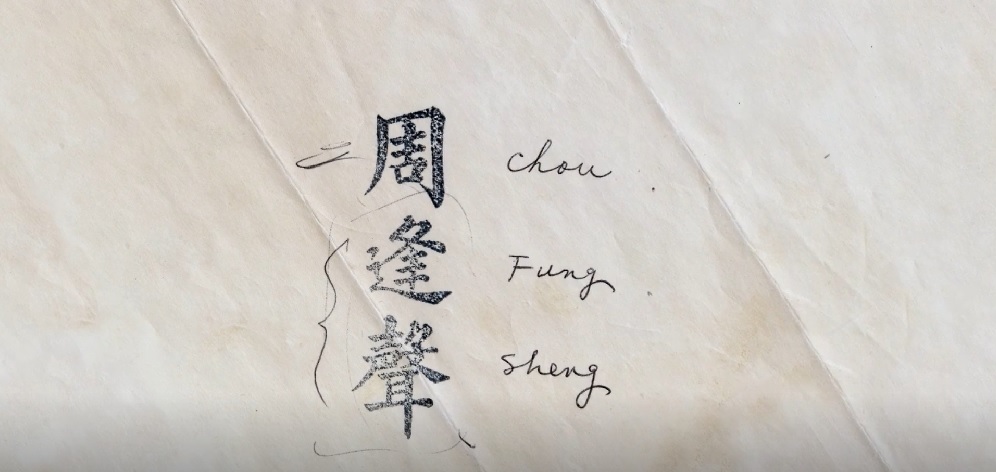 周 chou
逢 Fung
聲 sheng